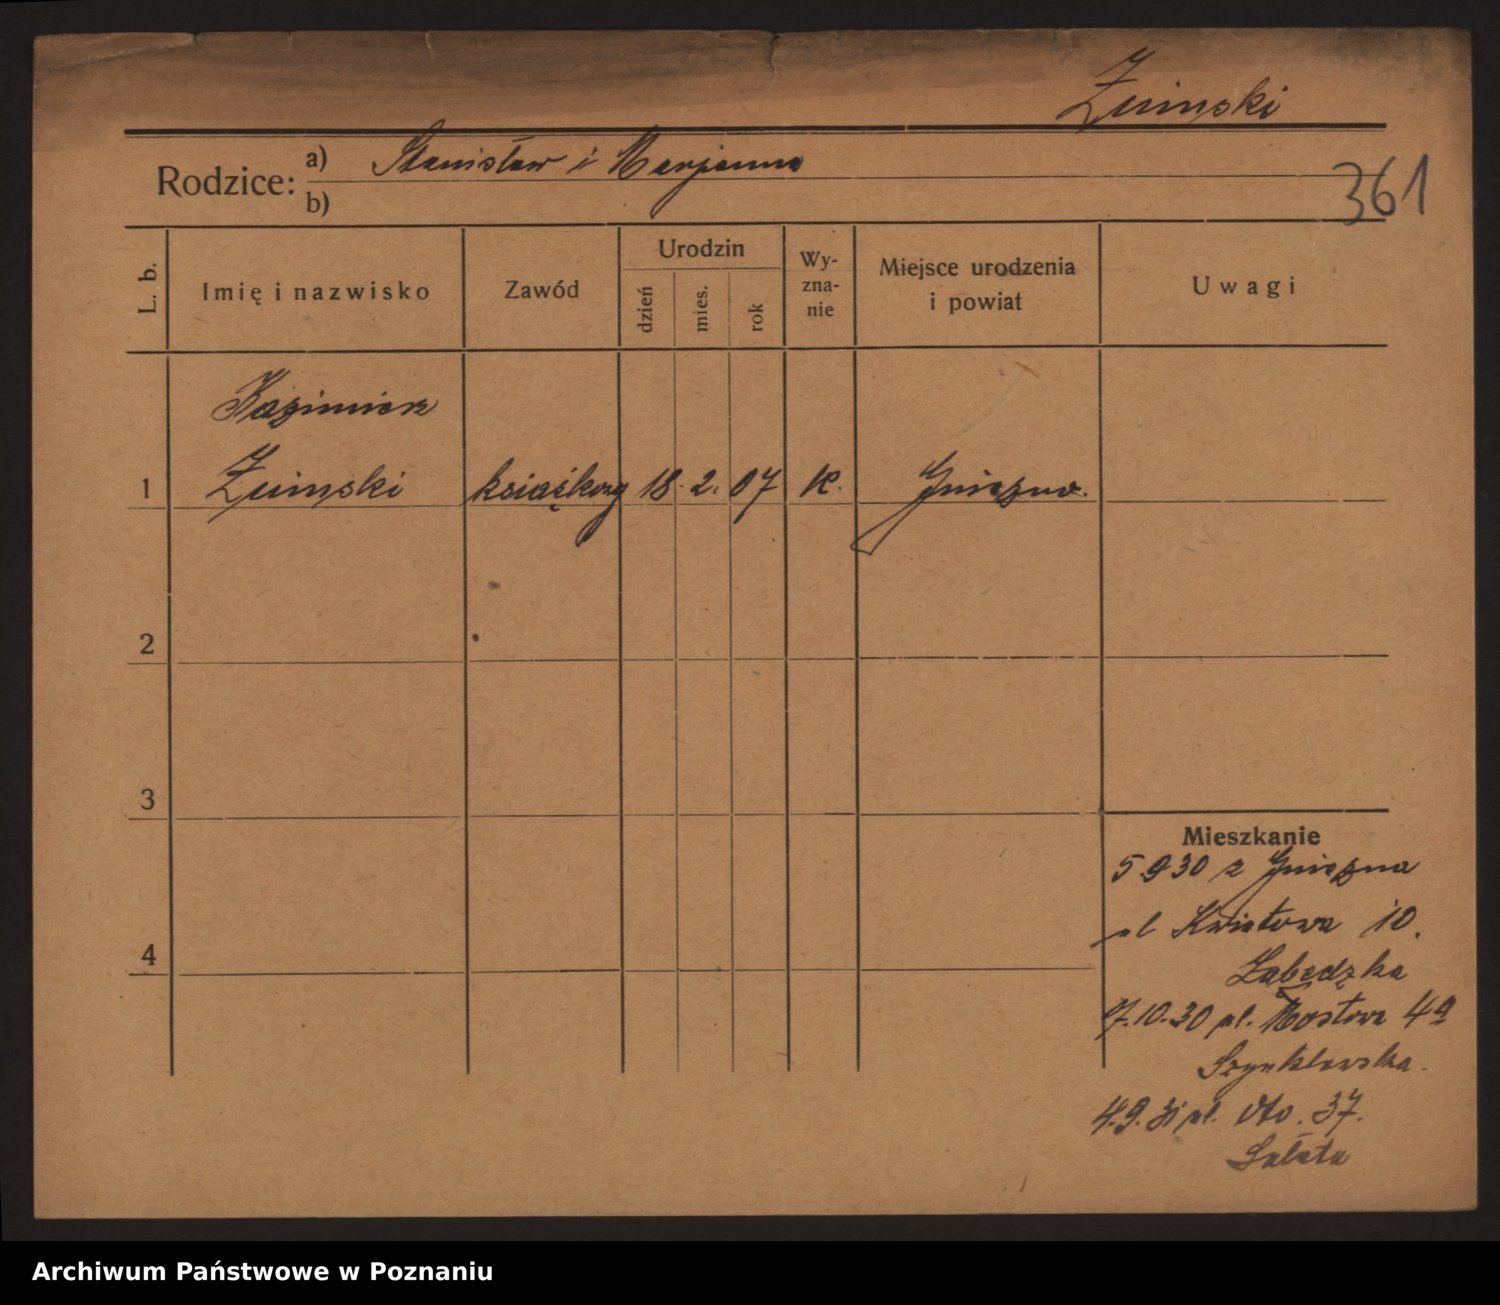 Żninski
Rodzice: a) Stanisław i Marjanna
b)
361
L. b.
Imię i nazwisko
Zawód
Urodzin
dzień
mies.
rok
Wy-
zna-
nie
Miejsce urodzenia
i powiat
Uwagi
Kazimierz
1 Żninski 18. 2. 07 K. Gniezno.
2
3
4
Mieszkanie
5 9 30 z Gniezna
ul Kwiatowa 10.
Łabędzka
7.10.30 ul. Mostowa 4a
4.9.31 ul. 37.
Sałata
Archiwum Państwowe w Poznaniu